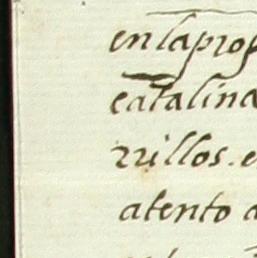 en la prof
catalina
rrillos. e
atento a